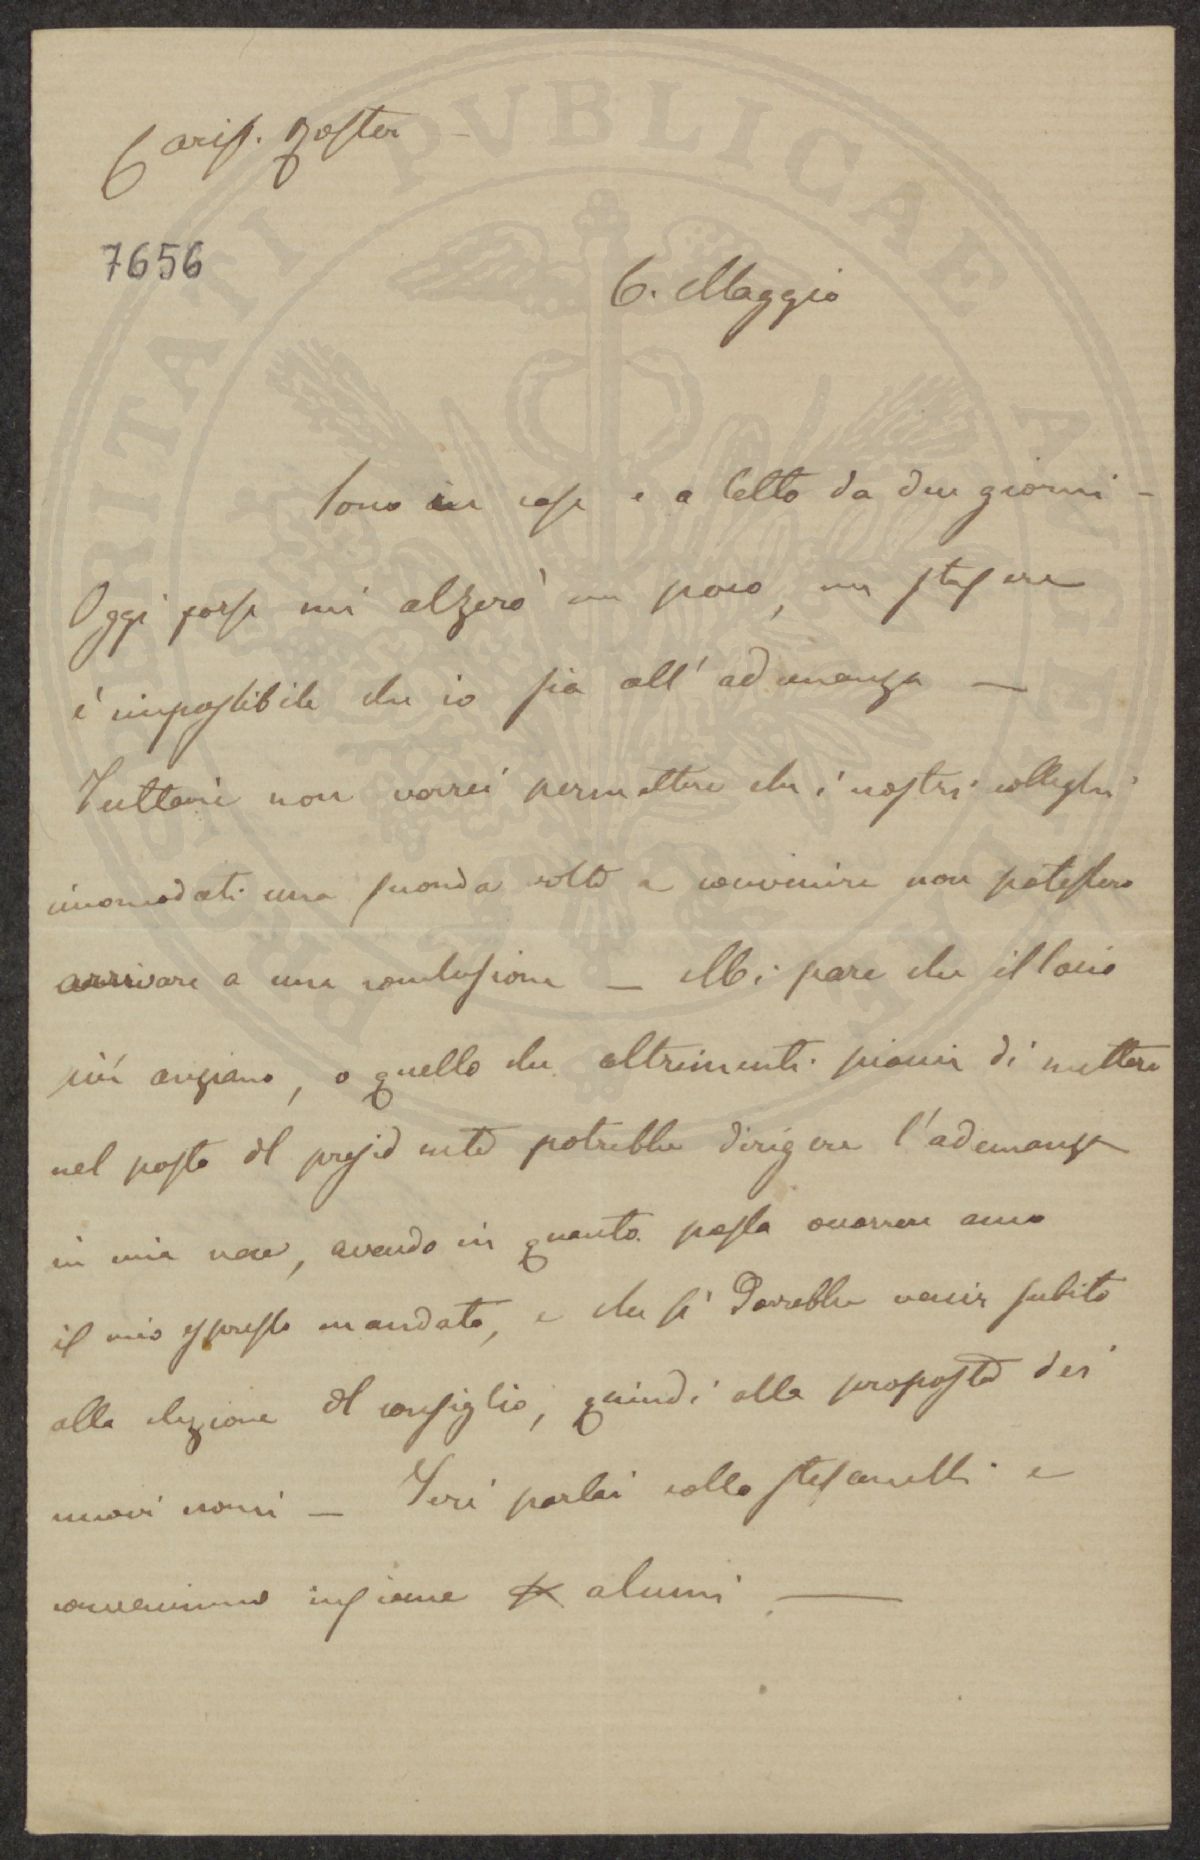 Cariss. Roster
7656
6. Maggio
Sono in casa e a letto da due giorni -
Oggi forse mi alzerò un poco, ma stasera
è impossibile che io sia all'adunanza —
Tuttavia non vorrei permettere che i nostri colleghi
incomodati una seconda volta a convenire non potessero
arrivare a una conclusione — Mi pare che il socio
più anziano, o quello che altrimenti piaccia di mettere
nel posto del presidente potrebbe dirigere l'adunanza
in mia vece, avendo in quanto possa occorrere anco
il mio espresso mandato, e che si dovrebbe venir subito
alla elezione del consiglio, quindi alla proposta dei
nuovi nomi — Ieri parlai collo Stefanelli e
convenimmo insieme alcuni —
PVBLICAE